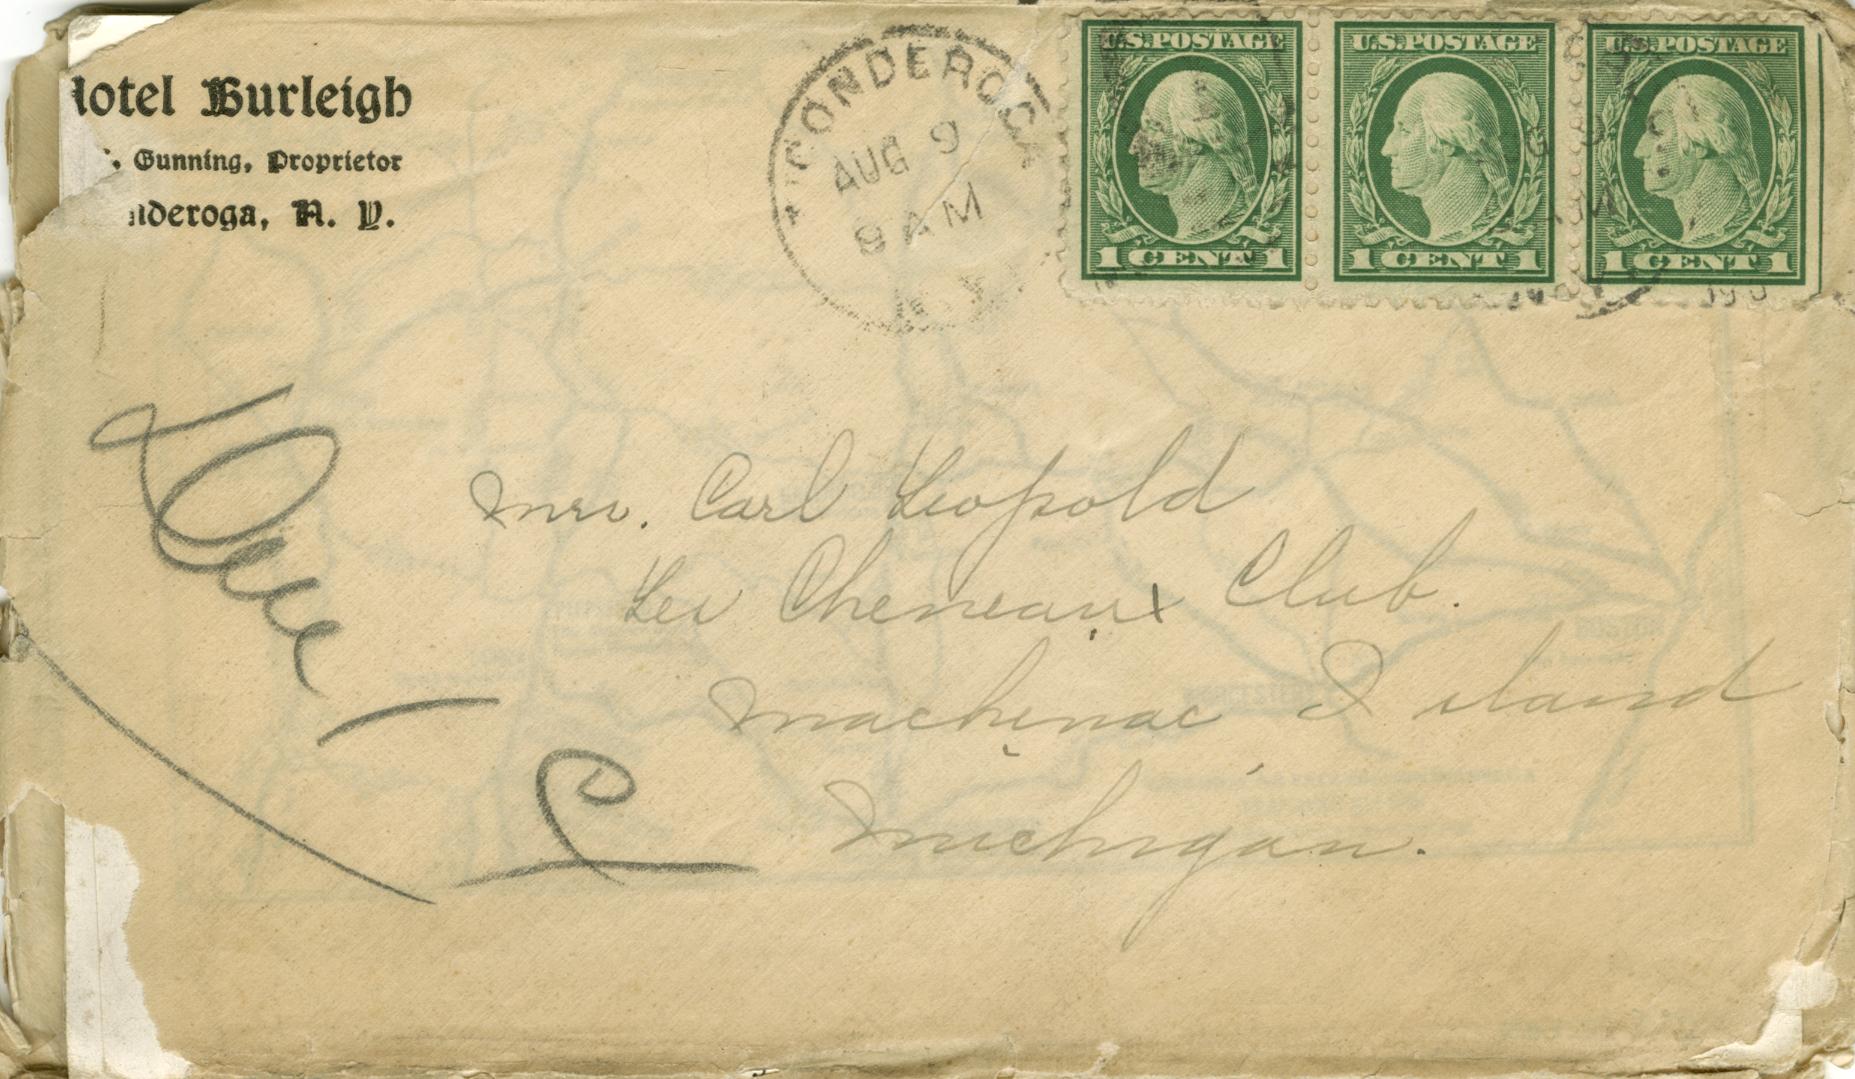 Hotel Burleigh
Gunning, Proprietor
nderoga, N. Y.
TICONDEROGA
AUG 9
8 AM
N.Y.
U.S.POSTAGE
1 CENT 1
U.S.POSTAGE
1 CENT 1
U.S.POSTAGE
1 CENT 1
Mrs. Carl Leopold
Les Cheneaux Club.
Mackinac Island
Michigan.